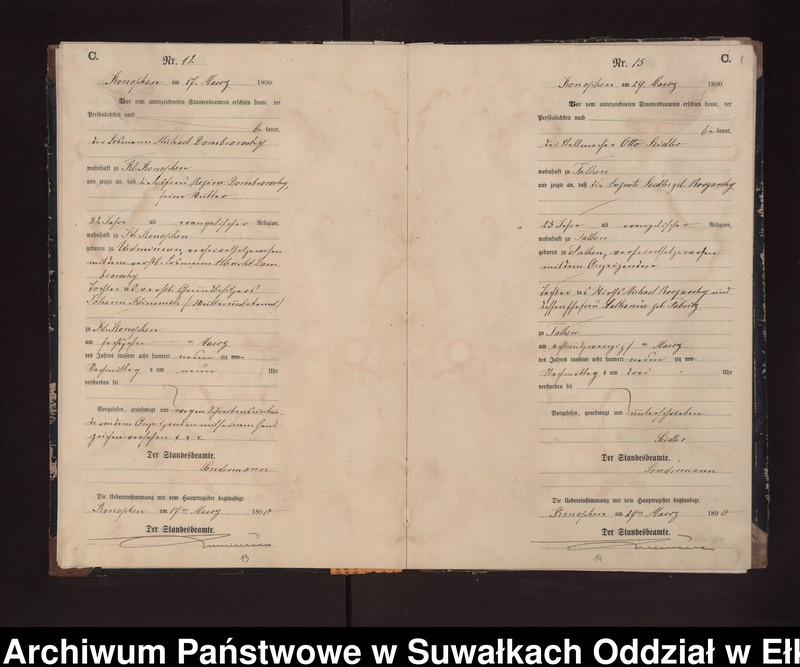 C.
Nr. 12
Konopken am 17. Maerz 1890.
Vor dem unterzeichneten Standesbeamten erschien heute, der
Persönlichkeit nach
be kannt,
der Losmann Michael Dombrowsky
wohnhaft zu Kl. Konopken
und zeigte an, daß die Dombrowsky,
seine Mutter
82 Jahre alt evangelischer Religion,
wohnhaft zu Kl. Konopken
geboren zu Widminnen, verheirathet gewesen
mit dem verstb. Losmann Michael Dom-
browsky
Tochter des verstb. Grundbesitzers
Johann (Mutter unbekannt)
zu Kl. Konopken
am sechszehn ten Maerz
des Jahres tausend acht hundert neun zig
Nachmittag s um neun Uhr
verstorben sei
Vorgelesen, genehmigt und wegen Schreibensunkun-
de von dem Anzeigenden mit seinem Hand-
zeichen versehen + + +
Der Standesbeamte.
Die Uebereinstimmung mit dem Hauptregister beglaubigt.
Konopken am 17ten Maerz 1890
Der Standesbeamte.
13
C.
Nr. 13
Konopken am 29. Maerz 1890.
Vor dem unterzeichneten Standesbeamten erschien heute, der
Persönlichkeit nach
be kannt,
der Stellmacher Otto Seidler
wohnhaft zu Talken
und zeigte an, daß die Auguste Seidler geb.
23 Jahre alt evangelischer Religion,
wohnhaft zu Talken
geboren zu Talken, verheirathet gewesen
mit dem Anzeigenden
Tochter des Wirths Michael und
dessen Ehefrau Katharine geb.
zu Talken
am achtundzwanzigs ten Maerz
des Jahres tausend acht hundert neun zig
Nachmittag s um drei Uhr
verstorben sei
Vorgelesen, genehmigt und unterschrieben
Seidler
Der Standesbeamte.
Die Uebereinstimmung mit dem Hauptregister beglaubigt.
Konopken am 29ten Maerz 1890
Der Standesbeamte.
14
Archiwum Państwowe w Suwałkach Oddział w Ełk